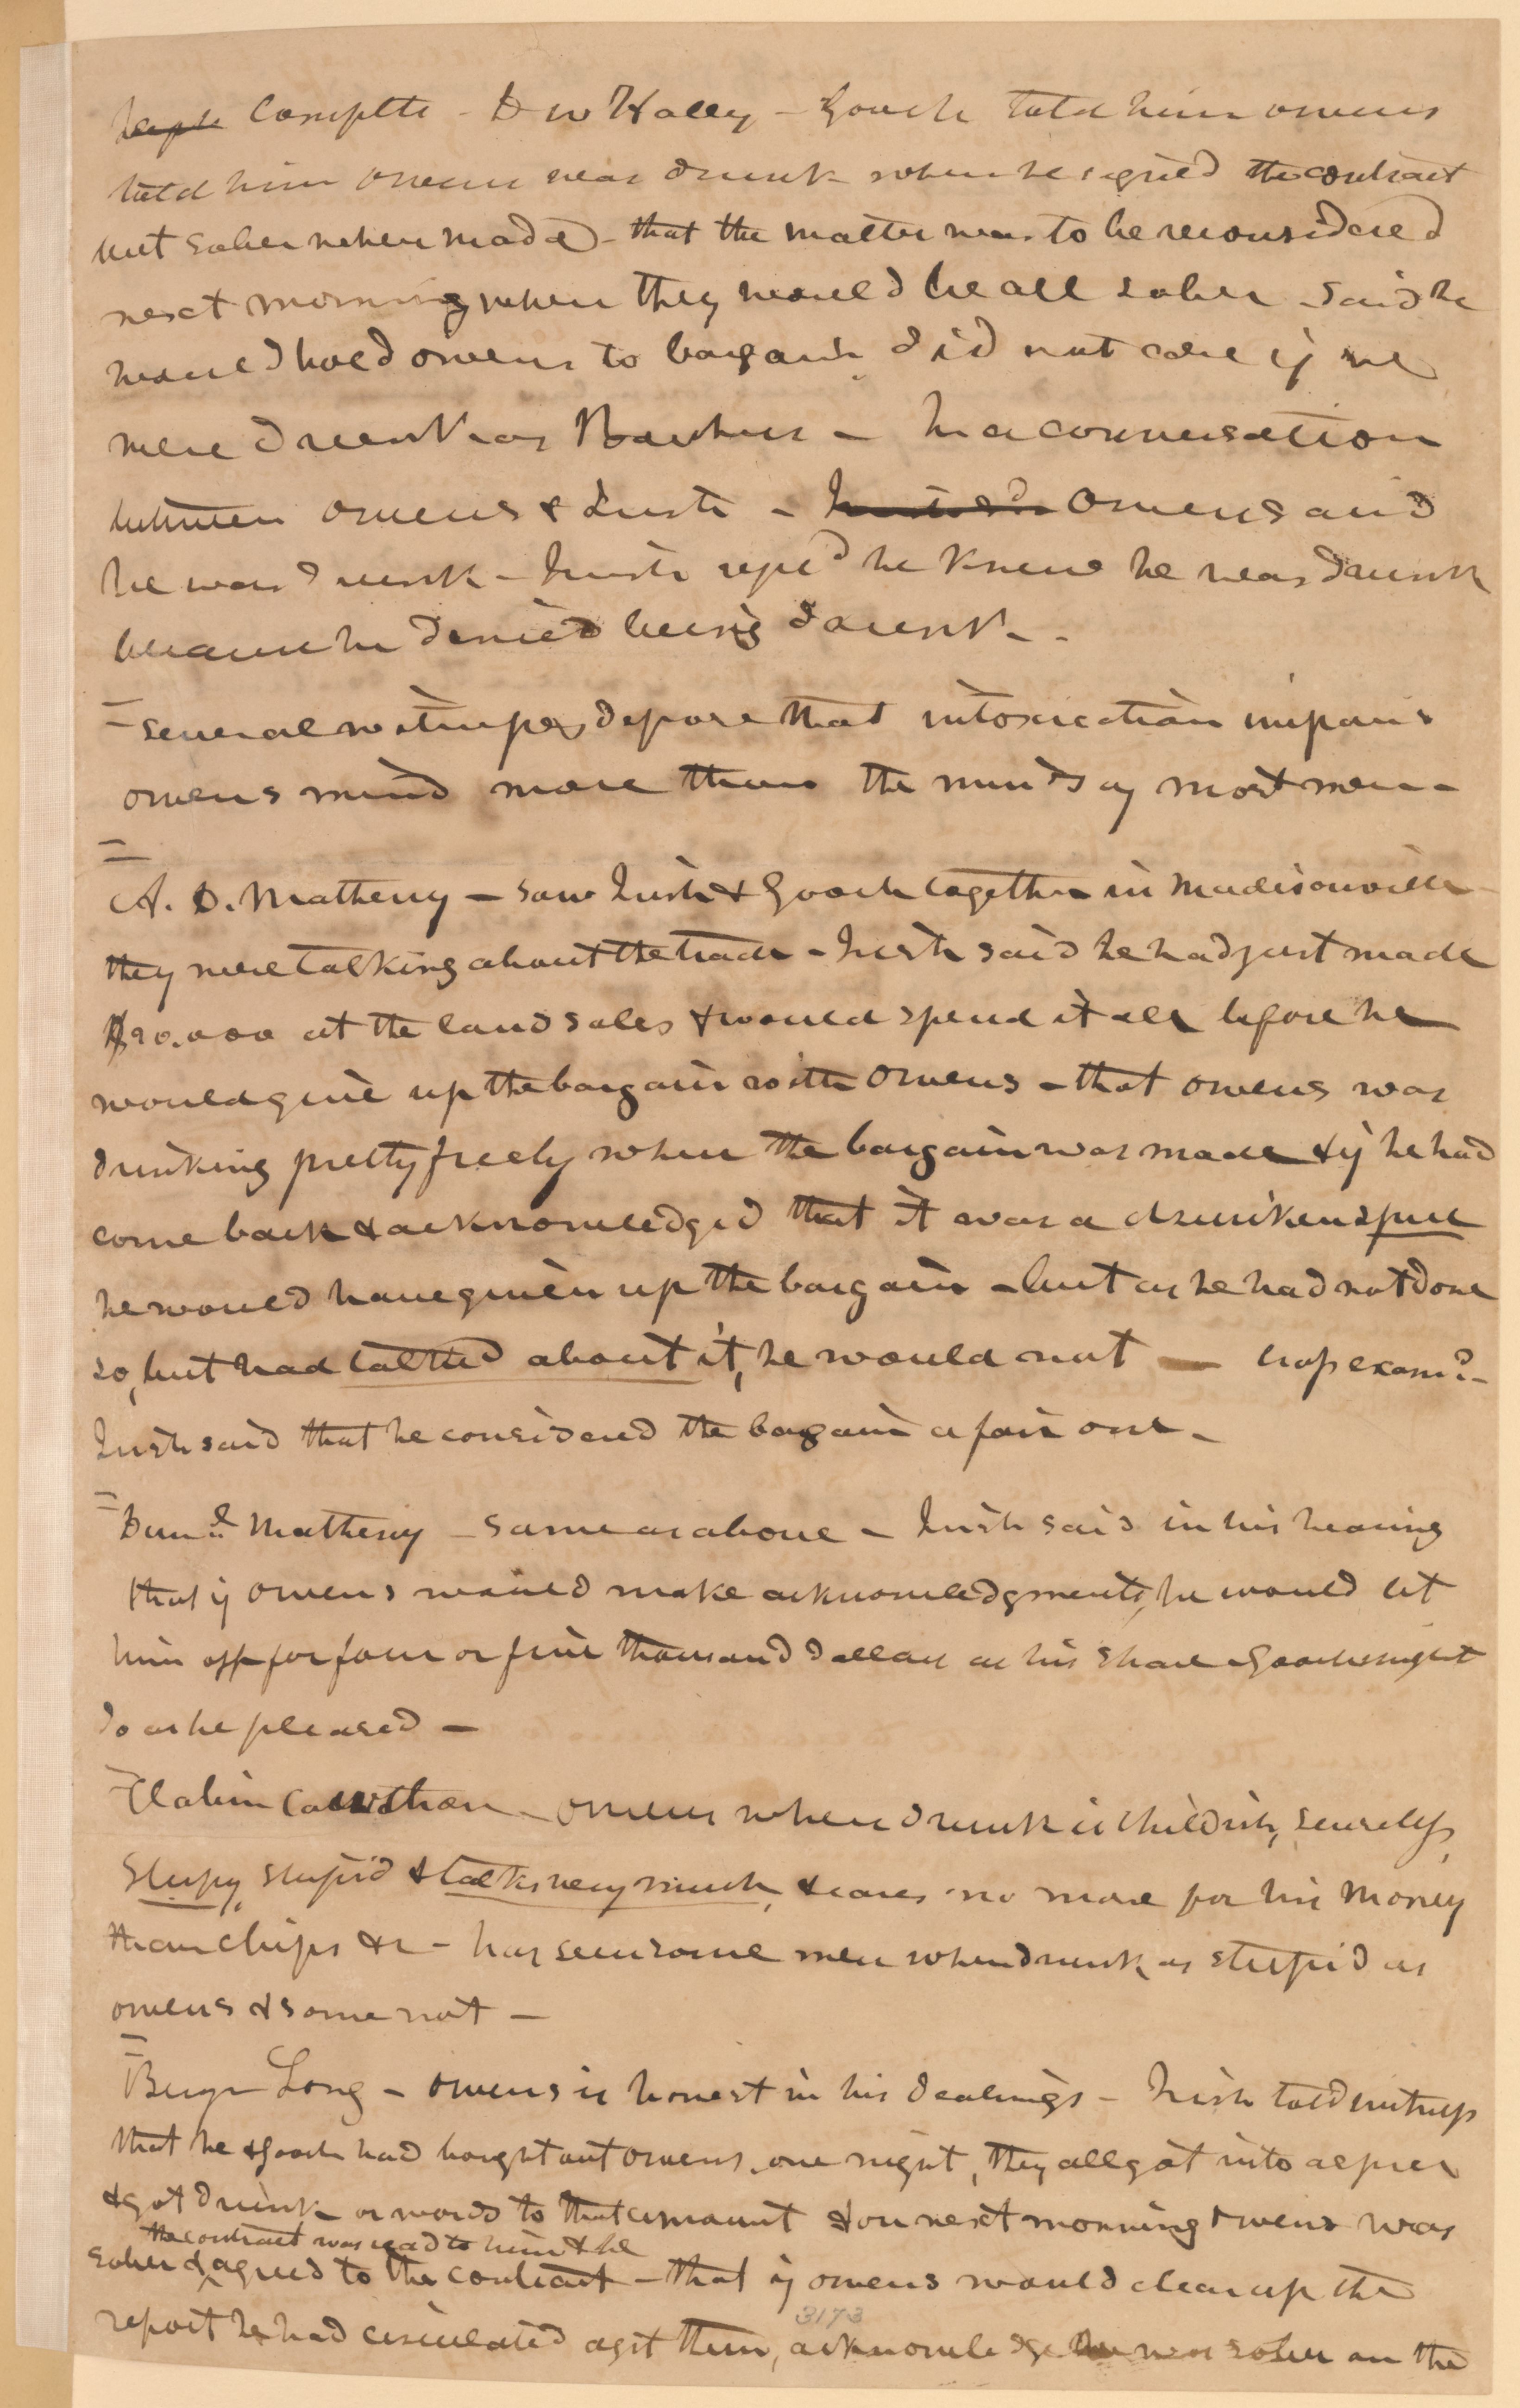 complete - D W Halley - Gooch told him owens
told him owens was drunk when he signed the contract
but sober when made - that the matter was to be reconsidered
next morning when they would be all sober - said he
would hold owens to bargain did not care if he
were drunk as Bacchus - In a conversation
between owens & Irish - Owens said
he was drunk - Irish repd he knew he was drunk
because he denied being drunk -
= several witnesses depose that intoxication impairs
owens mind more than the minds of most men -
=
A. D. Matheny - saw Irish & Gooch together in Madisonville -
they were talking about the trade - Irish said he had just made
$20.000 at the land sales & would spend it all before he
would give up the bargain with Owens - that owens was
drinking pretty freely when the bargain was made & if he had
come back & acknowledged that it was a drunken spree
he would have given up the bargain - but as he had not done
so, but had talked about it, he would not — cross examd -
Irish said that he considered the bargain a fair one -
= Matheny - same as above - Irish said in his hearing
that if owens would make acknowledgments, he would let
him off for four or five thousand dollars as his share - Gooch might
do as he pleased -
owens when drunk is childish, senseless,
sleepy, stupid & talks very much, & cares no more for his money
than chips &c - has seen some men when drunk as stupid as
owens & some not -
=
Benjn Long - owens is honest in his dealings - Irish told witness
that he & Gooch had bought out owens one night, they all got into a spree
& got drunk or words to that amount & on next morning owens was
the contract was read to him & he
sober & ^ agreed to the contract - that if owens would clear up the
3173
report he had circulated agst them, acknowledge he was sober on the